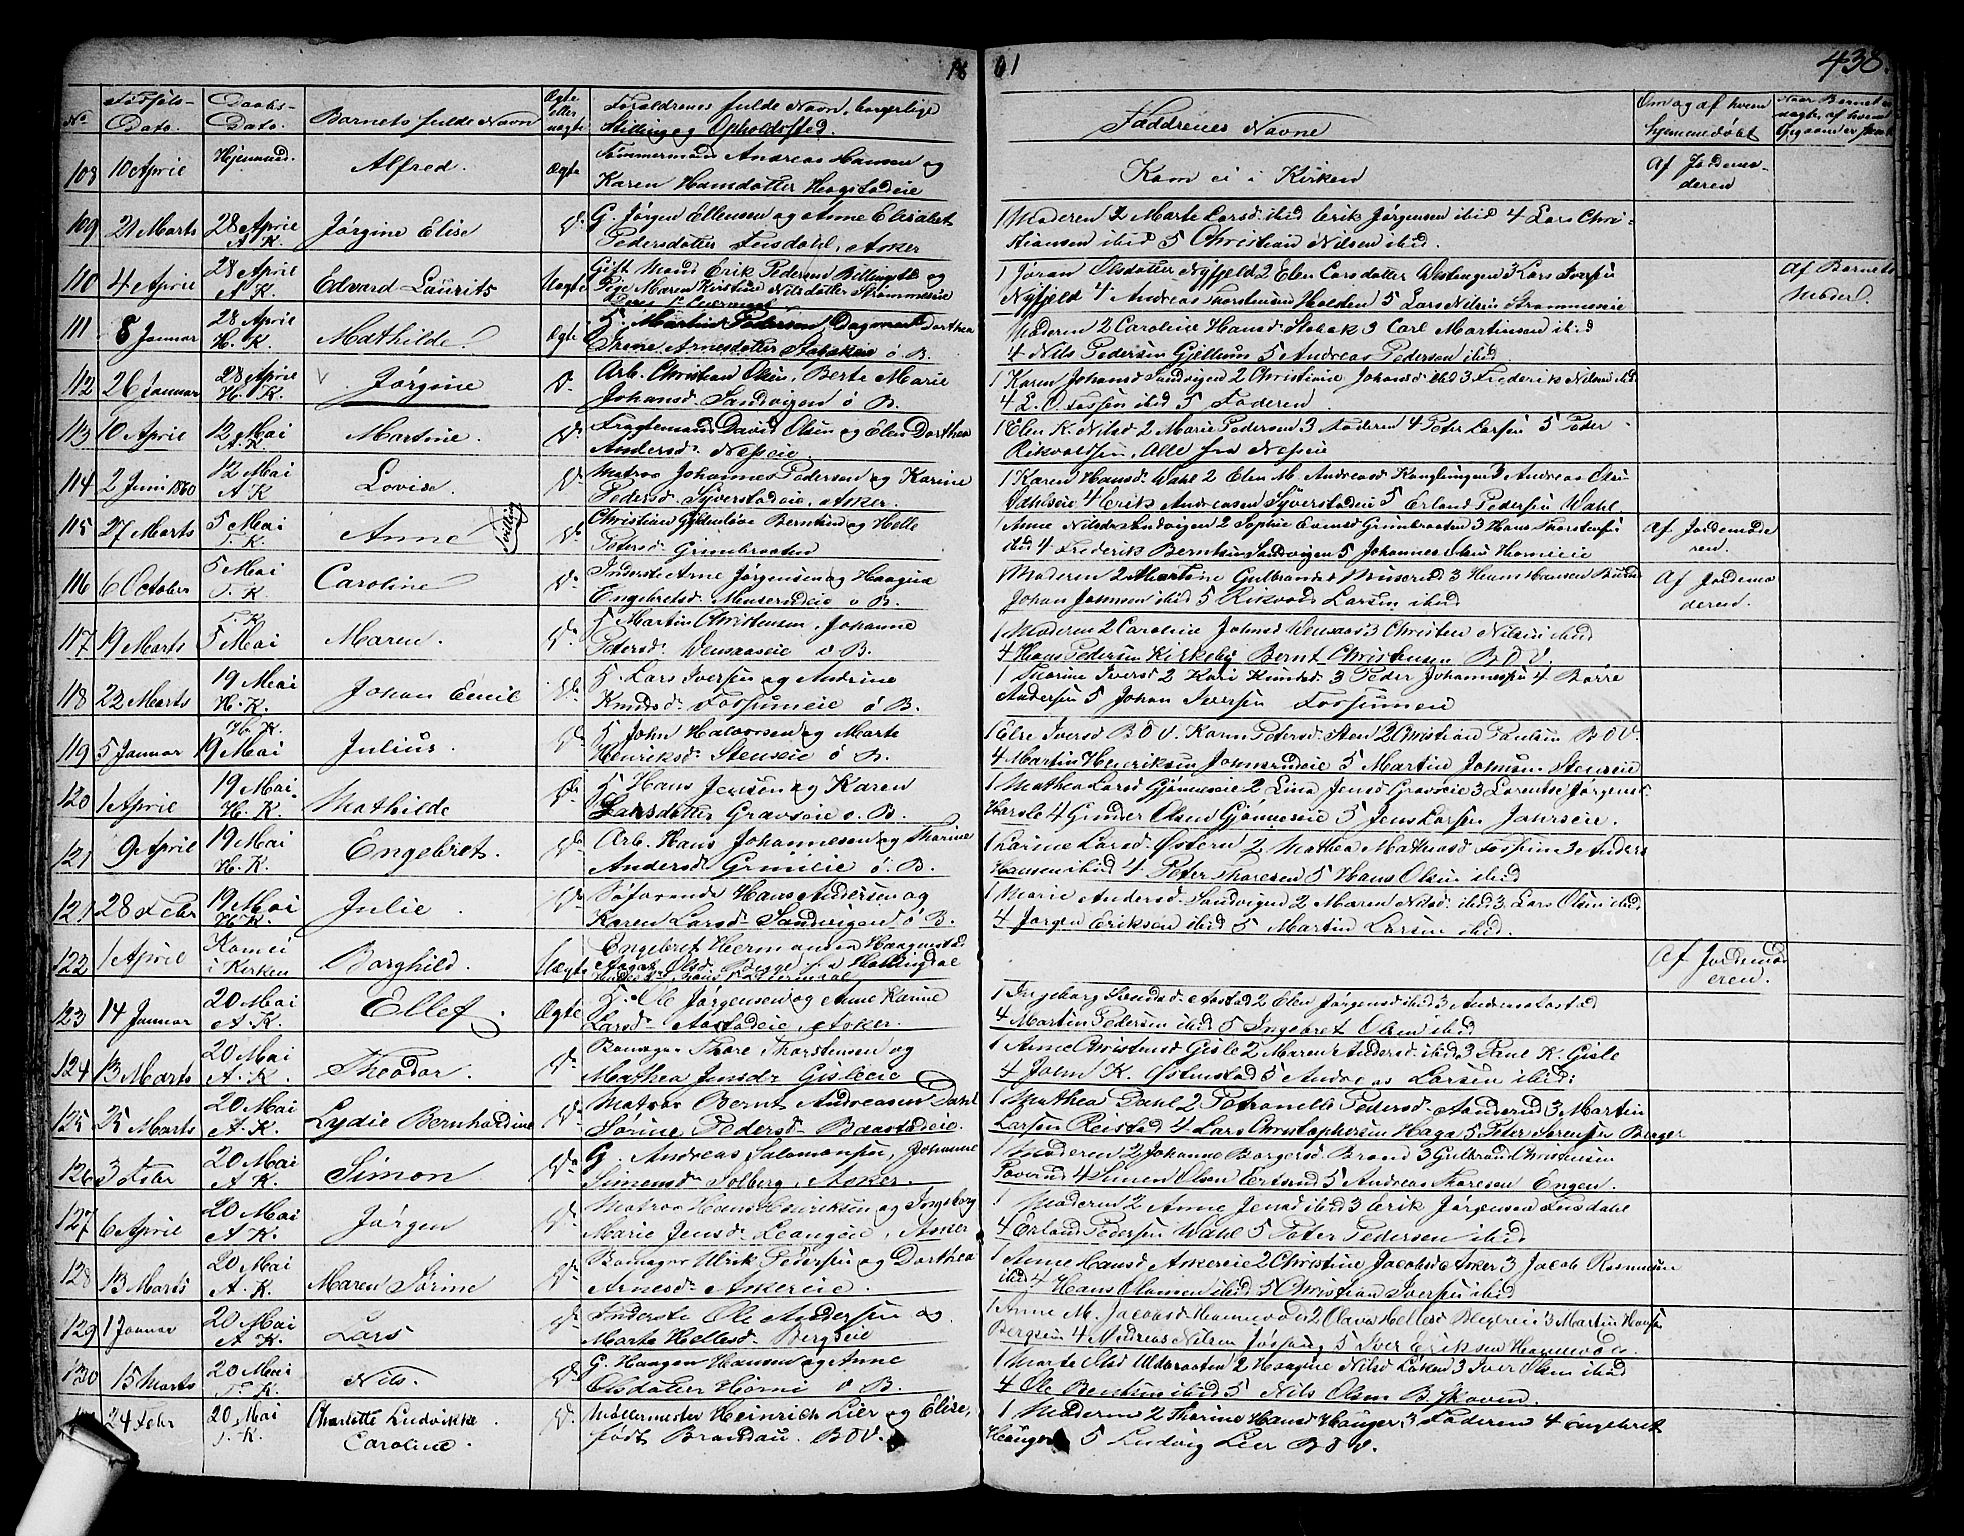 18 61 438.
No
Fødsels-
Dato.
Daabs-
Dato.
Barnets fulde Navn
Ægte
eller
uægte
Forældrenes fulde Navn, borgerlige
Stilling og Opholdssted.
Faddrenes Navne
Om og af hvem
hjemmedøbt
108 10 April Hjemmed. Alfred. Ægte Tømmermand Andreas Hansen og
Karen Hansdatter Hogstadeie
Kom ei i Kirken
Af Jordemo-
deren
109 21 Marts 28 April
A. K. Jørgine Elise Do G. Jørgen Ellensen og Anne Elisabet
Pedersdatter Leisdahl, Asker
1 Moderen 2 Marte Larsd. ibid Erik Jørgensen ibid 4 Lars Chri-
stiansen ibid 5 Christian Nilsen ibid.
110 4 April 28 April
A. K. Edvard Laurits Uægte Gift Mand Erik Pedersen Billingstd og
Pige Maren Kirstine Nilsdatter Strømmeseie
1 Jøran Olsdatter Nyfjeld 2 Elen Larsdatter 3 Lars Iversen
Nyfjeld 4 Andreas Thorstensen 5 Lars Nilsen Strømmeseie
Af Barnets
Moder.
111 8 Januar 28 April
H. K. Mathilde. Ægte Martin Pedersen, Dorthea
Irene Arnesdatter Stabækeie ö B.
Moderen 2 Caroline Hansd. Stabæk 3 Carl Martinsen ibid
4 Nils Pedersen Gjellum 5 Andreas Pedersen ibid
112 26 Januar 28 April
H. K. Jørgine Do Arb. Christian Olsen, Berte Marie
Johansd. Sandvigen ö B.
1 Karen Johansd Sandvigen 2 Christiane Johansd ibid 3 Frederik Nilsen ibid
4 L. O. Fossen ibid 5 Faderen.
113 10 April 12 Mai
A. K. Martine. Do Fragtemand David Olsen og Elen Dorthea
Andersd. Nesseie.
1 Elen K. Nilsd 2 Marie Pedersen 3 Faderen 4 Peter Larsen 5 Peter
Rikvoldsen, Alle fra Nesseie
114 2 Juni 1860 12 Mai
A K Lovise. Do Matros Johannes Pedersen og Karine
Pedersd. Syverstadeie, Asker.
1 Karen Hansd. Wahl 2 Elen M. Andreasd 3 Andreas Olsen
Dahlseie 4 Erik Andreasen Syverstadeie 5 Erland Pedersen Wahl
115 27 Marts 5 Mai
T. K. Anne Tvilling Do Christian Gyldenløve Berntsen og Helle
Petersd. Grimbraaten
1 Anne Nilsd Sandvigen 2 Sophie Grimbraaten 3 Hans Thorstensen
ibid 4 Frederik Berntsen Sandvigen 5 Johannes Olsen
Af Jordemode
ren.
116 6 October 5 Mai
T. K. Caroline Do Inderste Arne Jørgensen og Haagine
Engebretsd. Muserudeie v B.
Moderen 2 Martine Gulbrandsd Muserud 3 Hans Hansen
Johan Jonnsen ibid 5 Rikvold Larsen ibid
Af Jordemo
deren.
117 19 Marts T. K.
5 Mai Maren. Do Martin Christensen, Johanne
Petersd. Wensaaseie v B.
1 Moderen 2 Caroline Johnsd Wensaas 3 Christen Nilsen ibid
4 Hans Pedersen Kirkeby Bernt Christensen B O V.
118 22 Marts 19 Mai
H. K. Johan Emil Do Lars Iversen og Andrine
Knudsd. Fossumeie ö B.
1 Thorine Iversd 2 Kari Knudsd. 3 Peder Johannessen 4 Børre
Andersen 5 Johan Iversen Fossumeie
119 5 Januar H. K.
19 Mai Julius. Do John Halvorsen og Marte
Henriksd. Stenseie ö B.
1 Else Iversd B O V. Karen Petersd. Sten 2 Christian Paulsen B O V.
4 Martin Henriksen Johnsrudeie 5 Martin Johnsen Stenseie
120 1 April 19 Mai.
H. K. Mathilde Do Hans Jensen og Karen
Larsdatter Gravseie ö. B.
1 Mathea Larsd Gjønneseie 2 Lina Jensd Gravseie 3 Lorentse Jørgensd.
Hasle 4 Gunder Olsen Gjønneseie 5 Jens Larsen Jarseie.
121 9 April 19 Mai
H. K. Engebret. Do Arb. Hans Johannesen og Thorine
Andersd. Grinieie ö. B.
1 Karine Larsd. Østern 2 Mathea Mathiasd Fossum 3 Anders
Hansen ibid 4 Peter Thoresen 5 Hans Olsen ibid
121 28 Febr 19 Mai
H. K. Julie. Do Søfarende Hans Andersen og
Karen Larsd. Sandvigen ö B.
1 Marie Andersd. Sandvigen 2 Maren Nilsd. ibid 3 Lars Olsen ibid.
4 Jørgen Eriksen ibid 5 Martin Larsen ibid.
122 1 April Kom ei
i Kirken Borghild. Uægte Engebret Hermansen Haagenstad
Aagot Olsd. Berge fra Hallingdal
Af Jordemo
eren.
123 14 Januar 20 Mai
A. K. Ellef. Ægte Ole Jørgensen og Anne Karine
Larsd. Aastadeie, Asker.
1 Ingeborg Aastad 2 Elen Jørgensd ibid 3 Anders Aastad
4 Martin Pedersen ibid 5 Ingebret Olsen ibid
124 13 Marts 20 Mai
A. K. Theodor. Do Bomager Thore Thorstensen og
Mathea Jensdr Gisleeie
1 Anne Christensd Gisle 2 Maren Andersd. ibid 3 Paul K. Gisle
4 John K. Østenstad 5 Andreas Larsen ibid.
125 25 Marts 20 Mai
A. K. Lydie Bernhardine Do Matros Bernt Andreasen Dahl
Sørine Pedersd. Baastadeie.
1 Mathea Dahl 2 Petronelle Pedersd. Aanderud 3 Martin
Larsen Reistad 4 Lars Christophersen Haga 5 Peter Sørensen Berger
126 3 Febr 20 Mai
A K. Simon Do G. Andreas Salomonsen, Johanne
Simensd. Solberg, Asker.
1 Moderen 2 Johanne Borgersd. Brend 3 Gulbrand Christensen
Poverud 4 Simen Olsen 5 Andreas Thoresen Engen.
127 6 April 20 Mai
A K. Jørgen Do Matros Hans Henriksen og Ingeborg
Marie Jensd. Leangeie, Asker
1 Moderen 2 Anne Jensd ibid 3 Erik Jørgensen Leisdahl
4 Erland Pedersen Wahl 5 Peter Pedersen ibid
128 13 Marts 20 Mai
A. K. Maren Sørine Do Bomager Ulrik Pedersen og Dorthea
Arnesd. Askereie.
1 Anne Hansd Askereie 2 Christine Jacobsd Asker 3 Jacob Rasmussen
ibid 4 Hans Olausen ibid 5 Christian Iversen ibid
129 1 Januar 20 Mai
A K. Lars Do Inderste Ole Andersen og
Marte Hellesd. Bergseie
1 Anne M. Jacobsd. 2 Olava Hellesd 3 Martin Hansen
Bergseie 4 Andreas Nilsen 5 Iver Eriksen
130 15 Marts 20 Mai
T. K. Nils. Do G. Haagen Hansen og Anne
Olsdatter Horni v B.
1 Marte 2 Haagine Nilsd Løken 3 Iver Olsen ibid
4 Ole Berntsen ibid 5 Nils Olsen B. Skoven.
24 Febr 20 Mai
T. K. Charlotte Ludvikke
Caroline. Do Møllermester Heinrich Lier og Elise,
født Brandau. B O V.
1 Moderen 2 Thorine Hansd Hauger 3 Faderen 4 Engebret
Hauger 5 Ludvig Lier B O V.